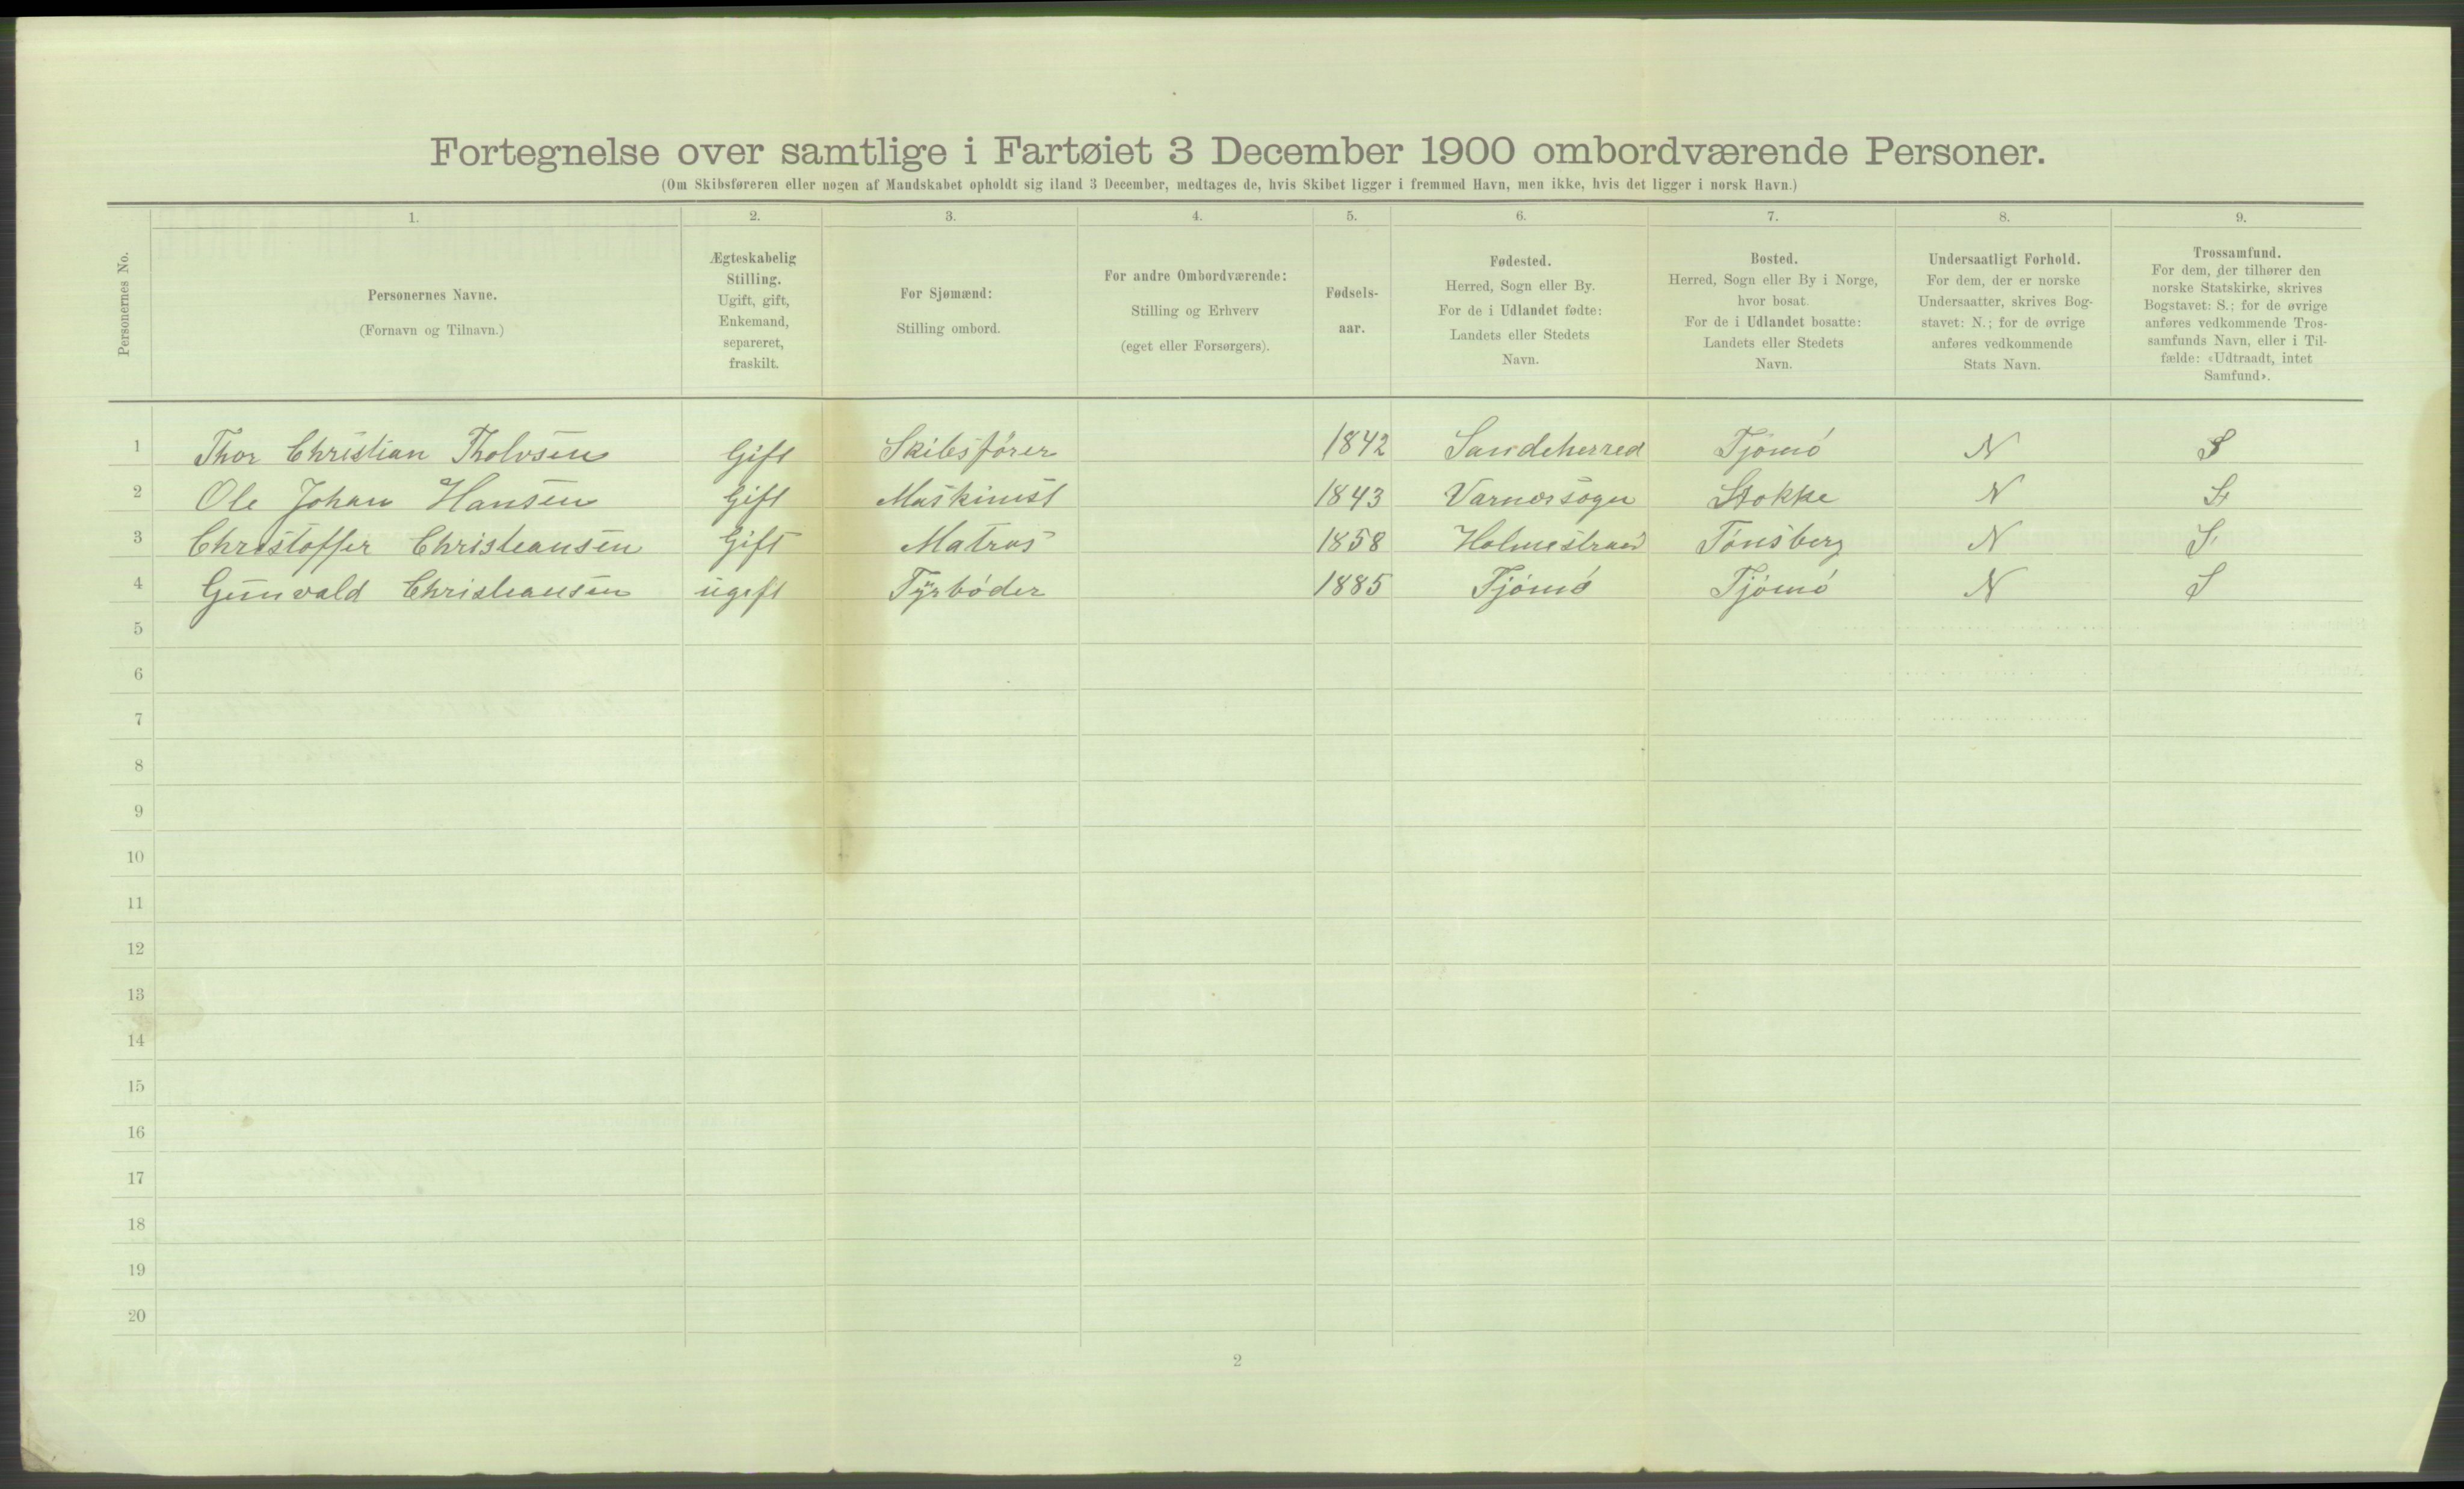 Fortegnelse over samtlige i Fartøiet 3 December 1900 ombordværende Personer.
(Om Skibsføreren eller nogen af Mandskabet opholdt sig iland 3 December, medtages de, hvis Skibet ligger i fremmed Havn, men ikke, hvis det ligger i norsk Havn.)
1. 2. 3. 4. 5. 6. 7. 8. 9.
Personernes No.
Personernes Navne.
(Fornavn og Tilnavn.)
Ægteskabelig
Stilling.
Ugift, gift,
Enkemand,
separeret,
fraskilt.
For Sjømænd:
Stilling ombord.
For andre Ombordværende:
Stilling og Erhverv
(eget eller Forsørgers).
Fødsels-
aar.
Fødested.
Herred, Sogn eller By.
For de i Udlandet fødte:
Landets eller Stedets
Navn.
Bosted.
Herred, Sogn eller By i Norge,
hvor bosat.
For de i Udlandet bosatte:
Landets eller Stedets
Navn.
Undersaatligt Forhold.
For dem, der er norske
Undersaatter, skrives Bog-
stavet: N.; for de øvrige
anføres vedkommende
Stats Navn.
Trossamfund.
For dem, der tilhører den
norske Statskirke, skrives
Bogstavet: S.; for de øvrige
anføres vedkommende Tros-
samfunds Navn, eller i Til-
fælde: «Udtraadt, intet
Samfund».
1 Thor Christian Tholvsen Gift Skibsfører 1842 Sandeherred Tjømø N S
2 Ole Johan Hansen Gift Maskinist 1843 Varnessogn Stokke N S
3 Christoffer Christiansen Gift Matros 1858 Holmestrand Tønsberg N S
4 Gunvald Christiansen ugift Fyrbøder 1885 Tjømø Tjømø N S
5
6
7
8
9
10
11
12
13
14
15
16
17
18
19
20
2